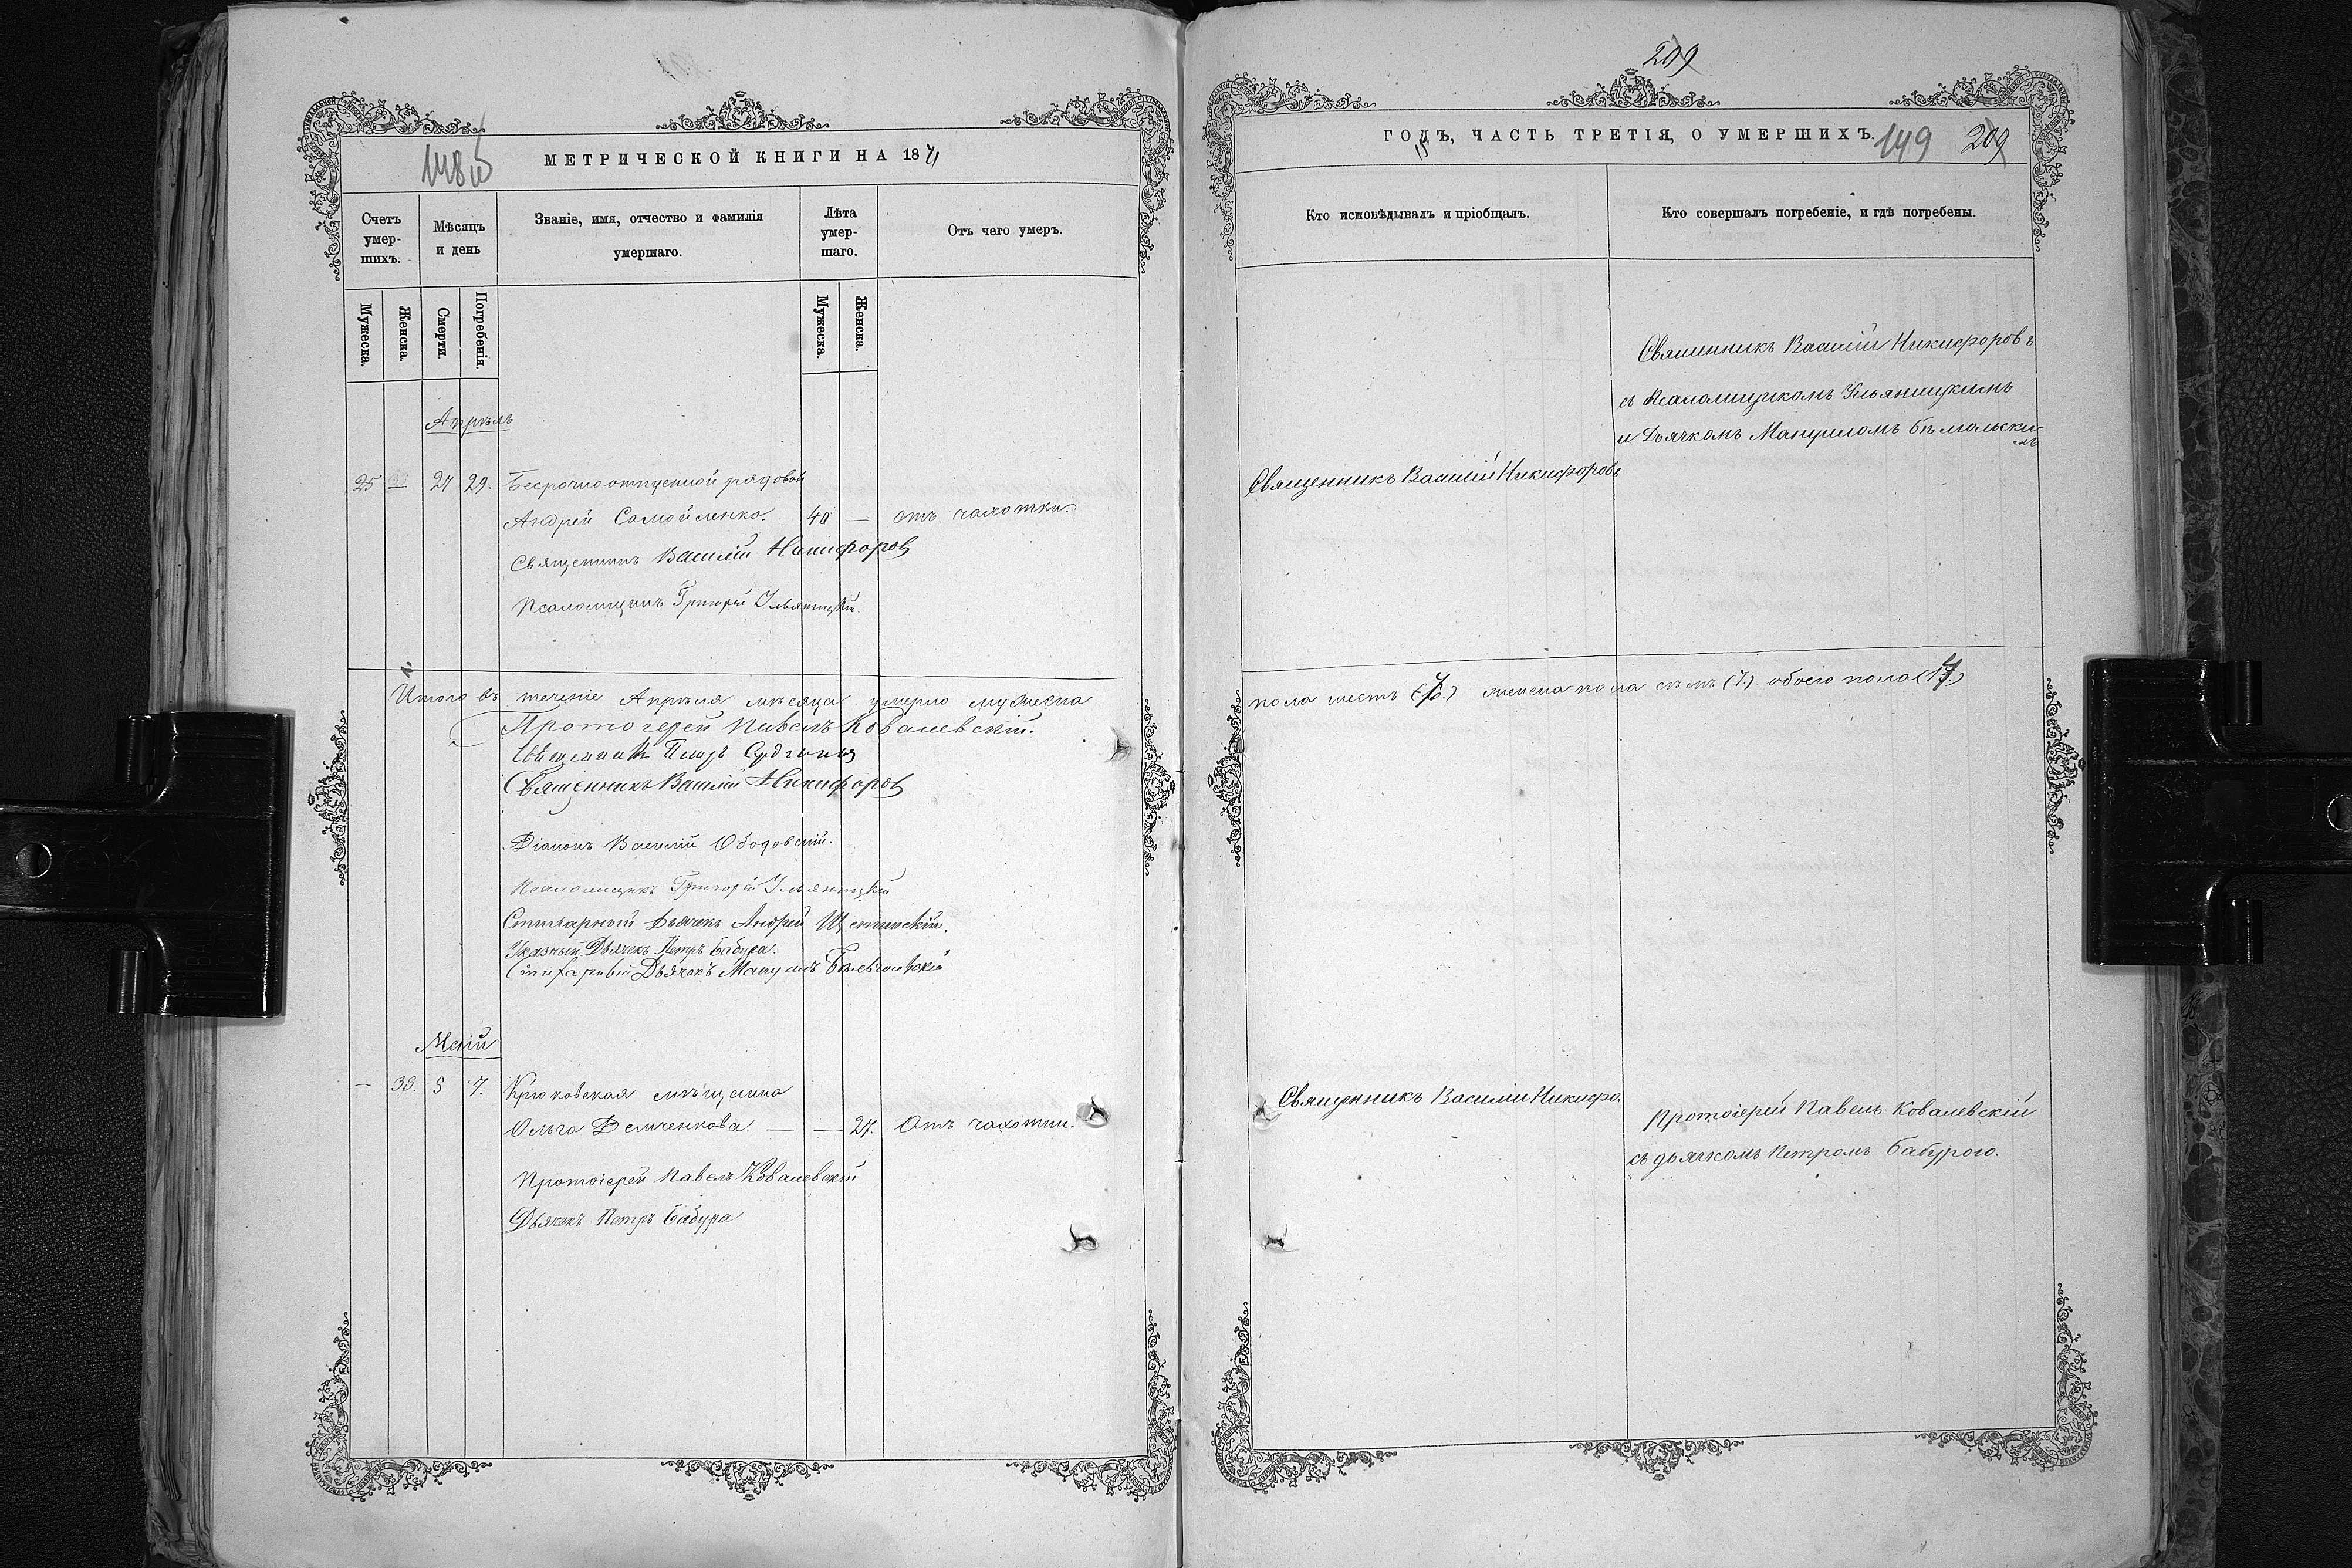 209
148 об
МЕТРИЧЕСКОЙ КНИГИ НА 1871
Счетъ умер-шихъ.
Мѣсяцъ и день
Званіе, имя, отчество и фамилія умершаго.
Лѣта умер-шаго.
Отъ чего умеръ.
Мужеска.
Женска.
Смерти.
Погребенія.
Мужеска.
Женска.
Апрѣль
25 27 29. Безсрочноотпускной рядовой
Андрей Самойленко. 40 — отъ чахотки.
Священникъ Василій Никифоровъ
Псаломщикъ Григорій Ульяницкій.
Итого въ теченіе Апрѣля мѣсяца умерло мужеска
Протоіерей Павелъ Ковалевскій.
Священникъ Петръ
Священникъ Василій Никифоровъ
Діаконъ Василій Ободовскій.
Псаломщикъ Григорій Ульяницкій
Стихарный Дьячекъ Андрей Щетинскій.
Указный Дьячекъ Петръ Бабура.
Стихарный Дьячекъ Мануилъ
Маій
— 33. 5 7. Крюковская мѣщанка
Ольга Демченкова. — — 27. Отъ чахотки.
Протоіерей Павелъ Ковалевскій
Дьячекъ Петръ Бабура
ГОДЪ, ЧАСТЬ ТРЕТІЯ, О УМЕРШИХЪ.
149 209
Кто исповѣдывалъ и пріобщалъ.
Кто совершалъ погребеніе, и гдѣ погребены.
Священникъ Василій Никифоровъ
съ Псаломщикомъ Ульяницкимъ
и Дьячкомъ Мануиломъ
Священникъ Василій Никифоровъ
пола шесть женска пола семь (7.) обоего пола
Священникъ Василій Никифо.
Протоіерей Павелъ Ковалевскій
съ дьячкомъ Петромъ Бабурою.